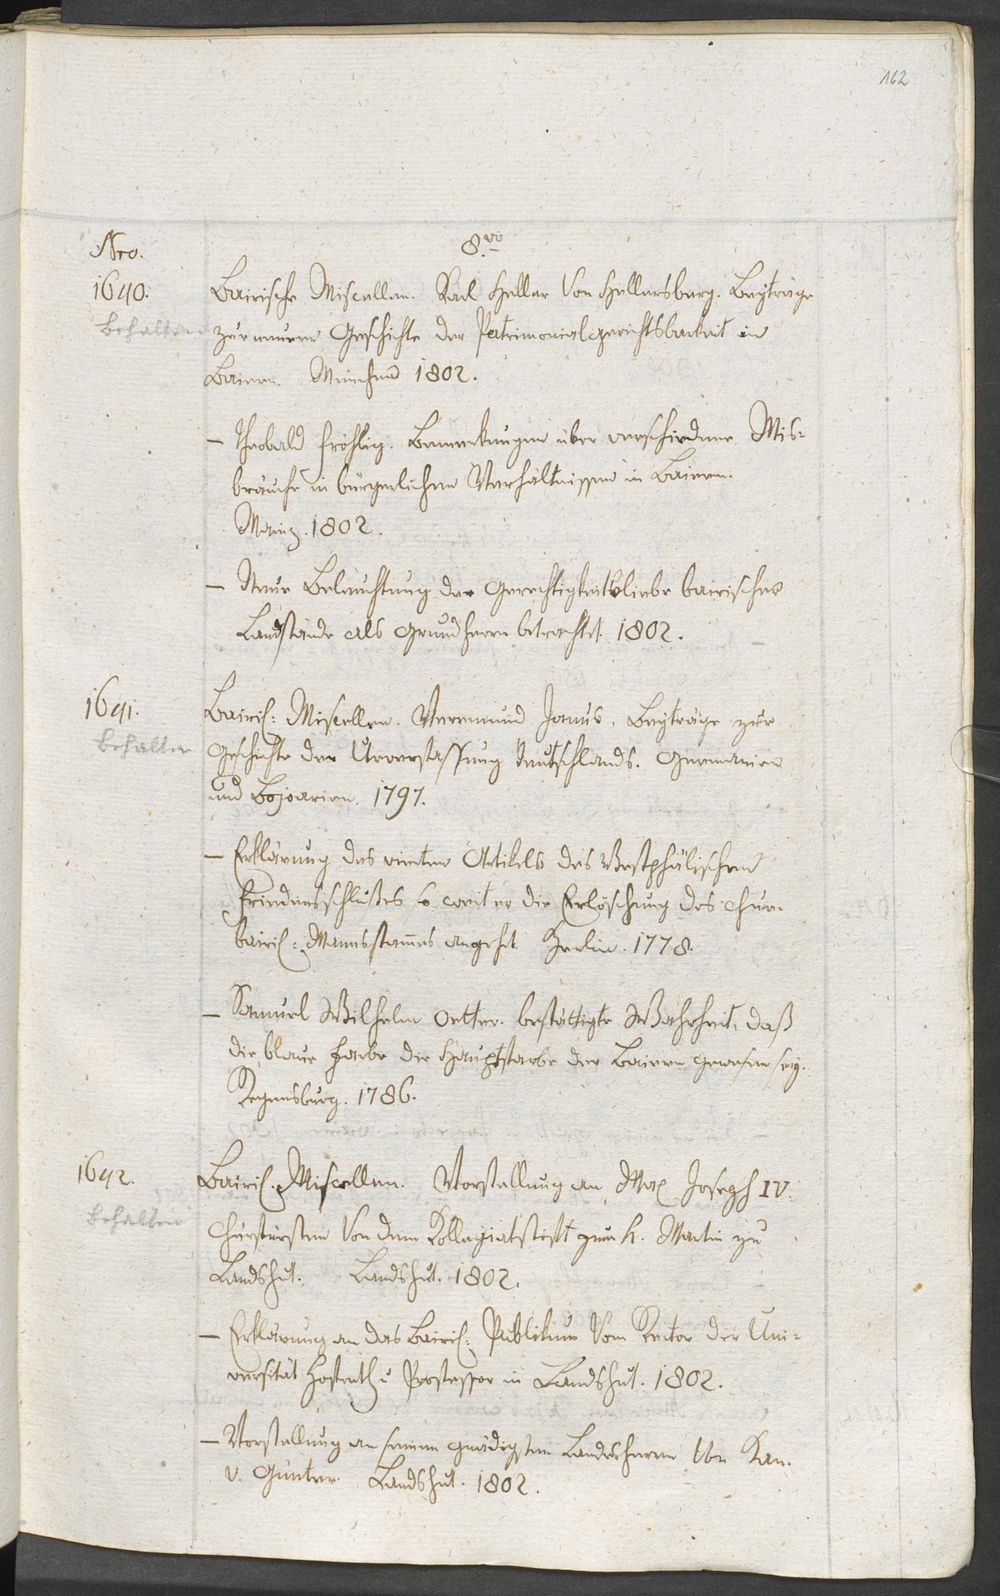 162
Nro.
8.vo
1640.
Bairische Miscellen. Karl Haller Von Hallersberg. Beyträge
behalten
zur neuern Geschichte der Patrimonialgerichtsbarkeit in
Baiern. München 1802.
— Theobald Fröhlig. Bemerkungen über verschiedene Mis-
bräuche in bürgerlichen Verhältnissen in Baiern.
Mainz. 1802.
— Neue Beleuchtung der Gerechtigkeitsliebe bairischer
Landstände als Grundherrn betrachtet. 1802.
1641.
Bairis: Miscellen. Veremund Janus. Beyträge zur
behalten
Geschichte der Urverfassung Deutschlands. Germanien
und Bojoarien. 1797.
— Erklärung des vierten Artikels des Westphälischen
Friedensschlußes so weit er die Erlöschung des Chur-
bairis: Mannsstames angeht. Berlin. 1778.
— Samuel Wilhelm Oetter. bestättigte Wahrheit, daß
die blaue Farbe die Hauptfarbe der Baiern gewesen sey.
Regensburg. 1786.
1642.
Bairis. Miscellen. Vorstellung an Max Joseph IV.
behalten
Churfürsten Von dem Kollegiatstift zum h. Martin zu
Landshut. Landshut. 1802.
— Erklärung an das Bairis: Publikum Vom Rector der Uni-
versität Hofrath u Professor in Landshut. 1802.
— Vorstellung an seinen gnädigsten Landesherrn Von
v. Günter. Landshut. 1802.